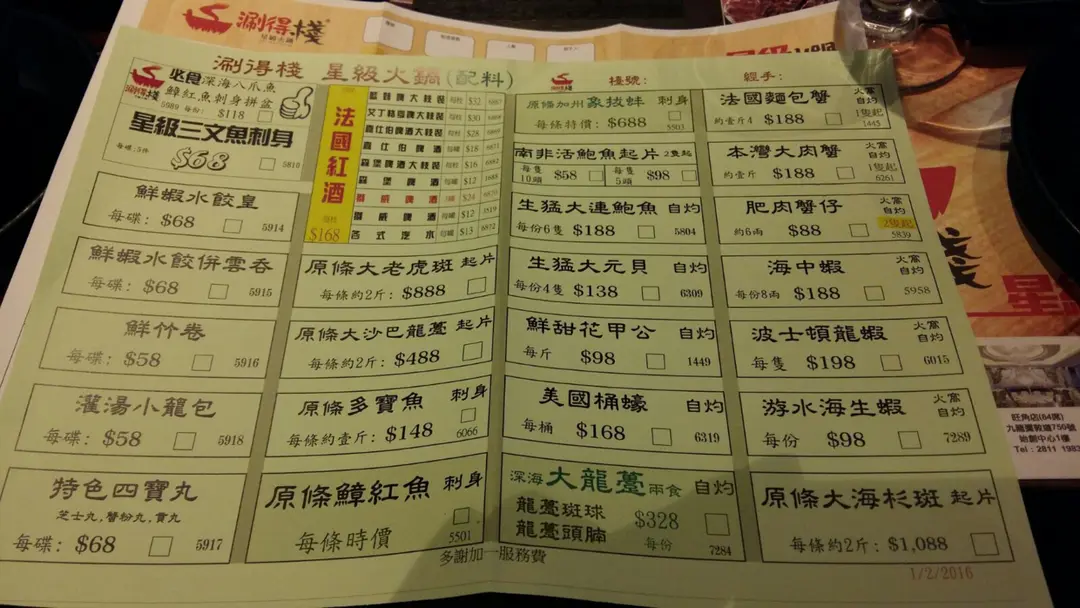 涮得棧
星級火鍋
涮得棧 星級火鍋(配料)
檯號:
經手:
涮得棧
必食深海八爪魚
鱆紅魚刺身拼盆
5989 每份: $118
星級三文魚刺身
每碟:5件 $68 5810
鮮蝦水餃皇
每碟: $68 5914
鮮蝦水餃併雲吞
每碟: $68 5915
鮮竹卷
每碟: $58 5916
灌湯小籠包
每碟: $58 5918
特色四寶丸
芝士丸,
每碟: $68 5917
法國紅酒
$168
藍妹啤大枝裝 每枝 $32
艾丁格啤大枝裝 每枝 $30
嘉仕伯啤大枝裝 每枝 $28
嘉仕伯啤酒 每罐 $18
森堡啤酒大枝裝 每枝 $16
森堡啤酒 每罐 $12
啤酒 $24
啤酒 每罐 $12
各式汽水 每罐 $13
原條大老虎斑 起片
每條約2斤: $888
原條大沙巴龍躉 起片
每條約2斤: $488
原條多寶魚 刺身
每條約壹斤: $148 6066
原條鱆紅魚 刺身
每條時價 5501
原條加州象拔蚌 刺身
每條特價: $688 5503
南非活鮑魚起片 2隻起
每隻10頭 $58 每隻5頭 $98
生猛大連鮑魚 自灼
每份6隻 $188 5804
生猛大元貝 自灼
每份4隻 $138 6309
鮮甜花甲公 自灼
每斤 $98 1449
美國桶蠔 自灼
每桶 $168 6319
深海大龍躉兩食 自灼
龍躉斑球
龍躉頭腩
$328
每份 7284
法國麵包蟹 火窩自灼
約壹斤4 $188 1隻起 1445
本灣大肉蟹 火窩自灼
約壹斤 $188 6261
肥肉蟹仔 火窩自灼
約6両 $88 2隻起 5839
海中蝦 火窩自灼
每份8両 $188 5958
波士頓龍蝦 火窩自灼
每隻 $198 6015
游水海生蝦 火窩自灼
每份 $98 7289
原條大海杉斑 起片
每條約2斤: $1,088
多謝加一服務費
1/2/2016
旺角店(84席)
九龍彌敦道750號
始創中心1樓
Tel : 2811 1983